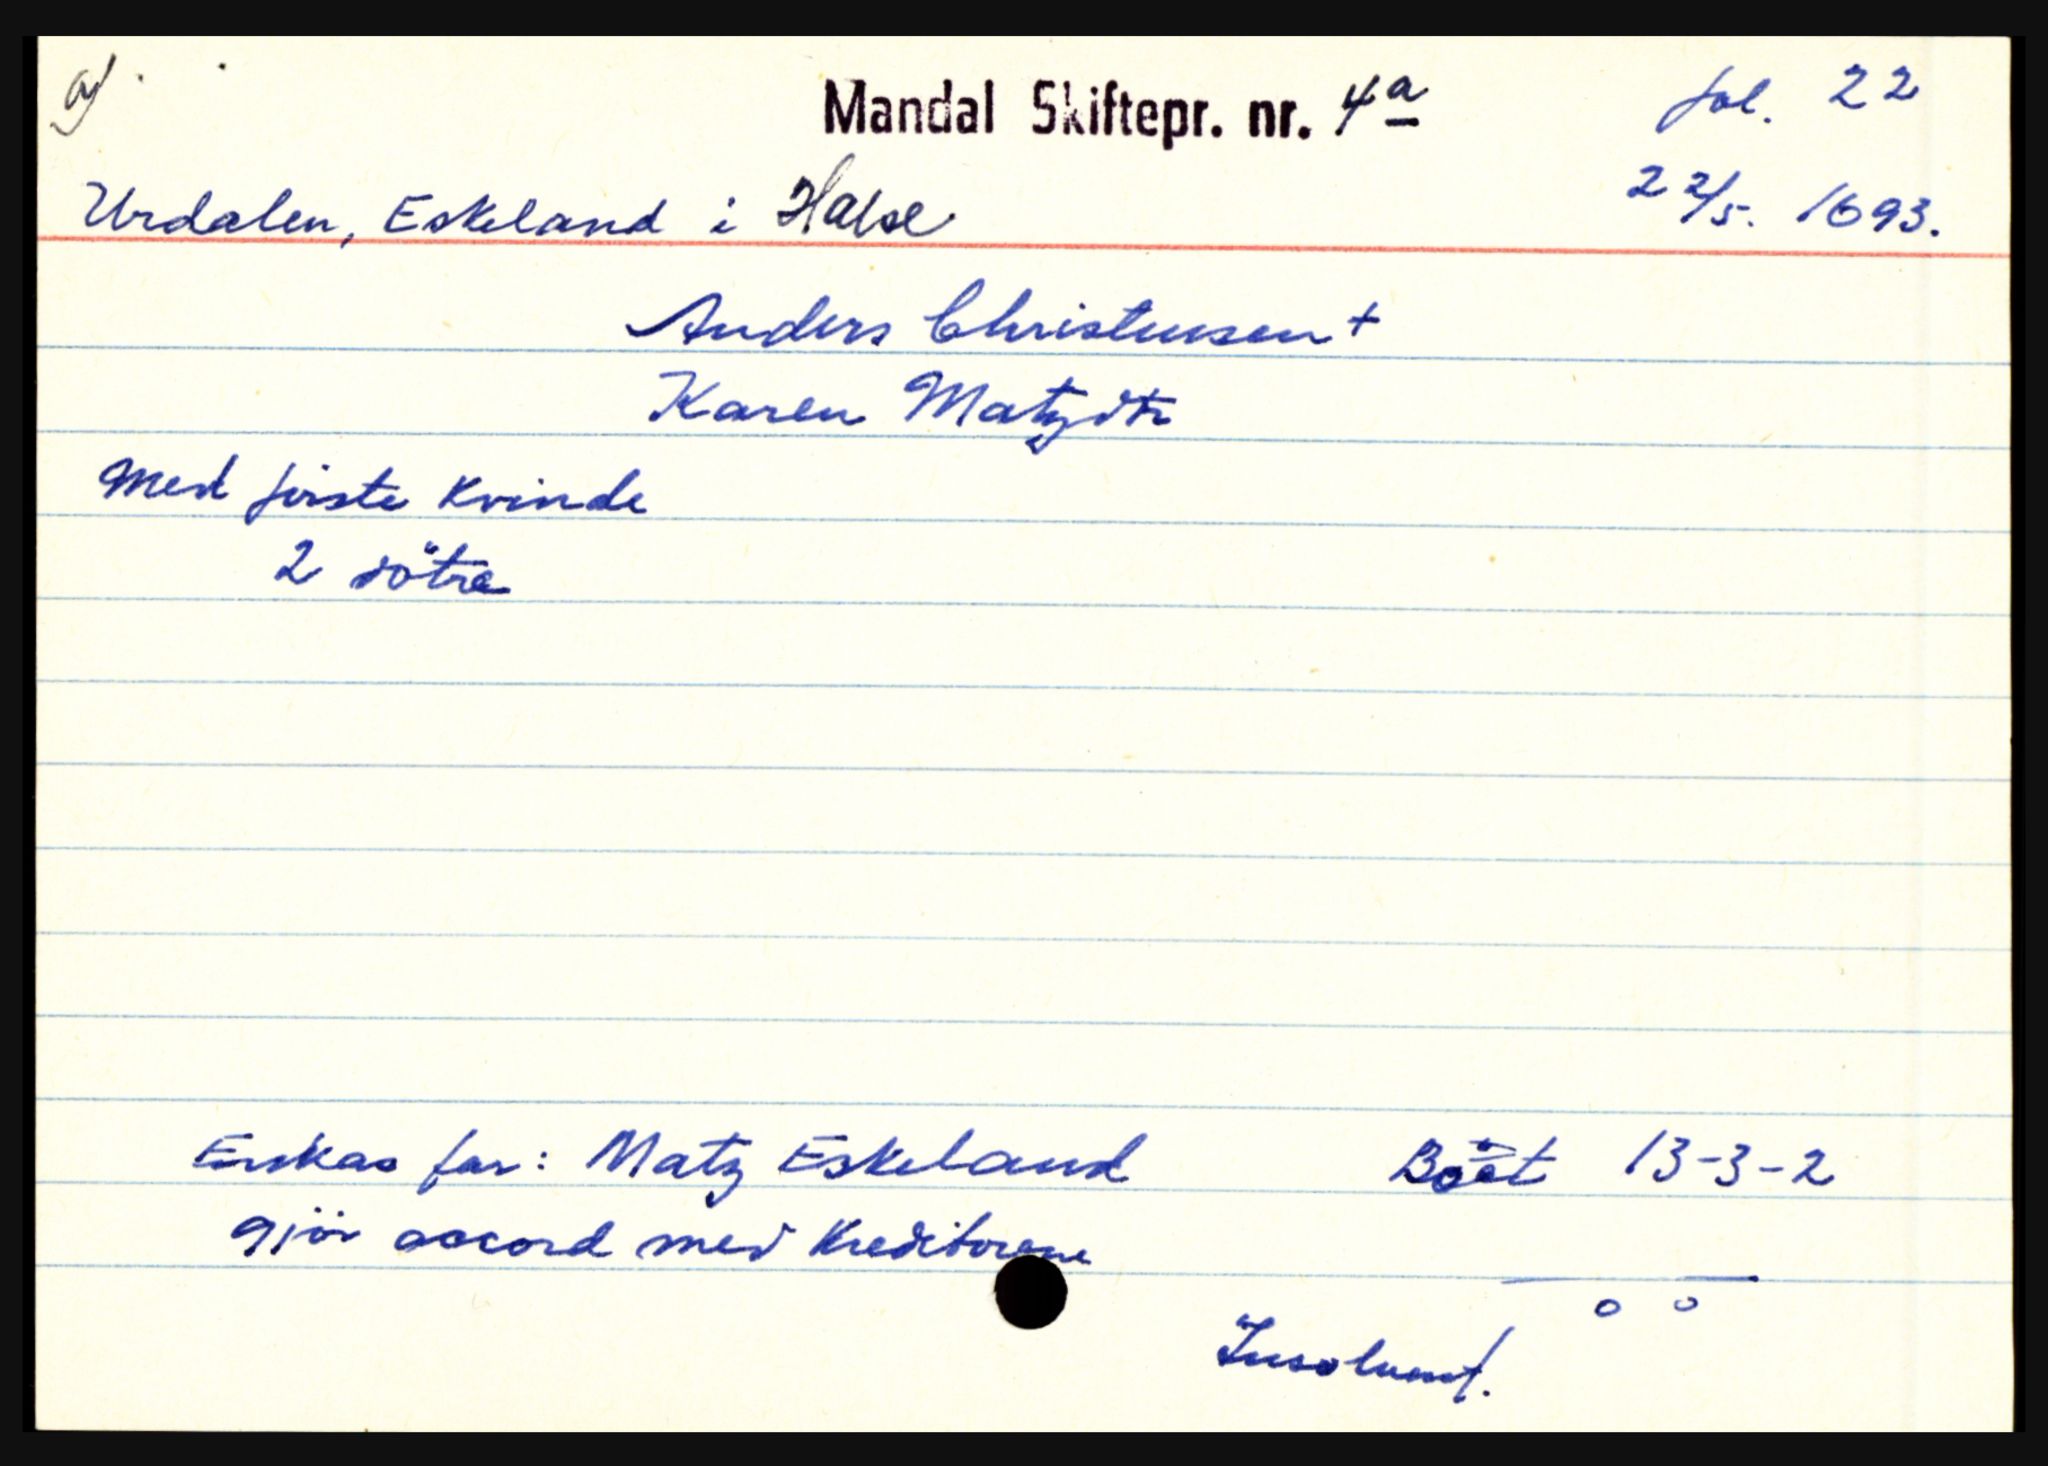 Mandal Skiftepr. nr. 4a
fol. 22
Urdalen, Eskeland i Halse
22/5. 1693.
Anders Christensen +
Karen Matzdtr
Med förste Kvinde
2 dötre
Enkas far: Matz Eskeland
Böet 13-3-2
gjör accord med Kreditorene
o o
Insolvent.